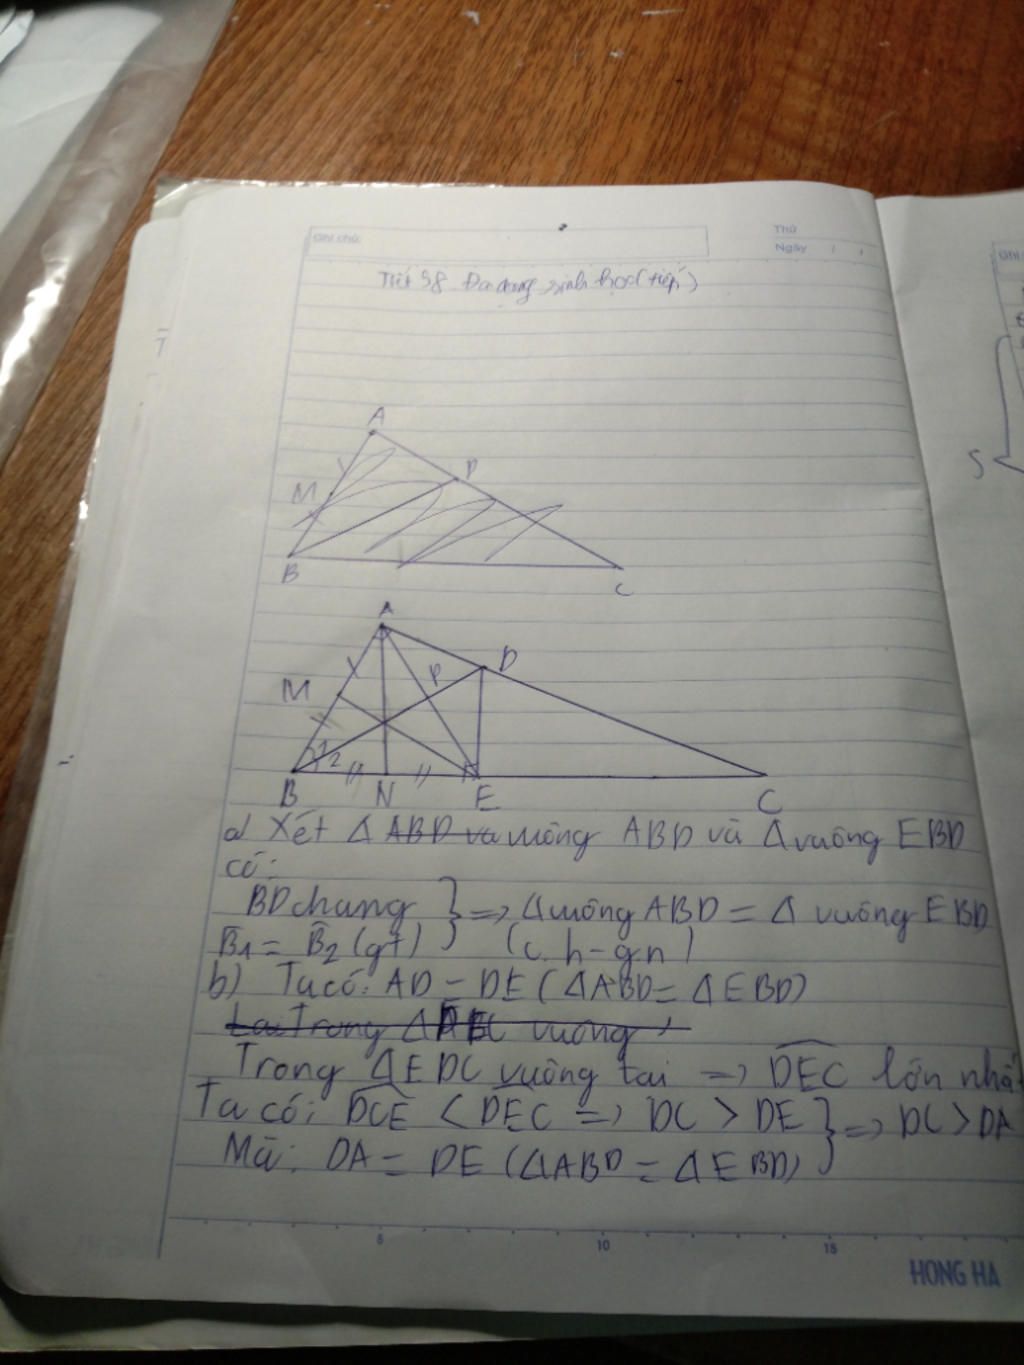 Ghi chú:
Thứ
Ngày / /
Tiết 58 Đa dạng sinh học (tiếp)
A
M
D
B
C
A
M
P
D
1
2
B
N
E
C
a) Xét Δ ABD và vuông ABD và Δ vuông EBD
có:
BD chung } => Δ vuông ABD = Δ vuông EBD
B̂1 = B̂2 (gt) (c.h-g.n)
b) Ta có: AD = DE (ΔABD = ΔEBD)
Trong Δ vuông
Trong ΔEDC vuông tại => DEC lớn nhất
Ta có: DCE < DEC => DC > DE } => DC > DA
Mà: DA = DE (ΔABD = ΔEBD)
S
5
10
15
HONG HA